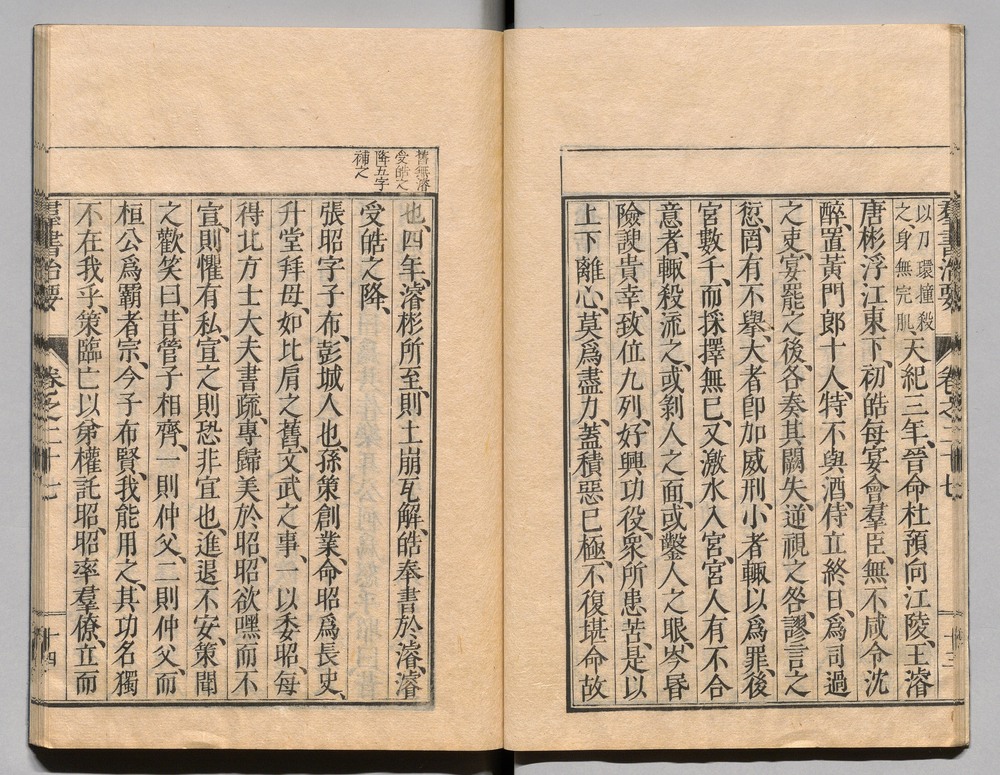 群書治要 卷之二十七 十三
以刀環撞殺
之身無完肌
天紀三年、晉命杜預向江陵、王濬
唐彬浮江東下、初皓每宴會羣臣、無不咸令沈
醉、置黃門郎十人、特不與酒、侍立終日、爲司過
之吏、宴罷之後、各奏其闕失、迕視之咎、謬言之
愆、罔有不舉、大者卽加威刑、小者輒以爲罪、後
宮數千、而採擇無已、又激水入宮、宮人有不合
意者、輒殺流之、或剝人之面、或鑿人之眼、岑昬
險諛貴幸、致位九列、好興功役、衆所患苦、是以
上下離心、莫爲盡力、蓋積惡已極、不復堪命故
舊無濬
受皓之
降五字
補之
也、四年、濬彬所至、則土崩瓦解、皓奉書於濬、濬
受皓之降、
張昭字子布、彭城人也、孫策創業、命昭爲長史、
升堂拜母、如比肩之舊、文武之事、一以委昭、每
得北方士大夫書疏、專歸美於昭、昭欲嘿而不
宣、則懼有私、宣之則恐非宜也、進退不安、策聞
之歡笑曰、昔管子相齊、一則仲父、二則仲父、而
桓公爲霸者宗、今子布賢、我能用之、其功名獨
不在我乎、策臨亡以弟權託昭、昭率羣僚、立而
群書治要 卷之二十七 十四